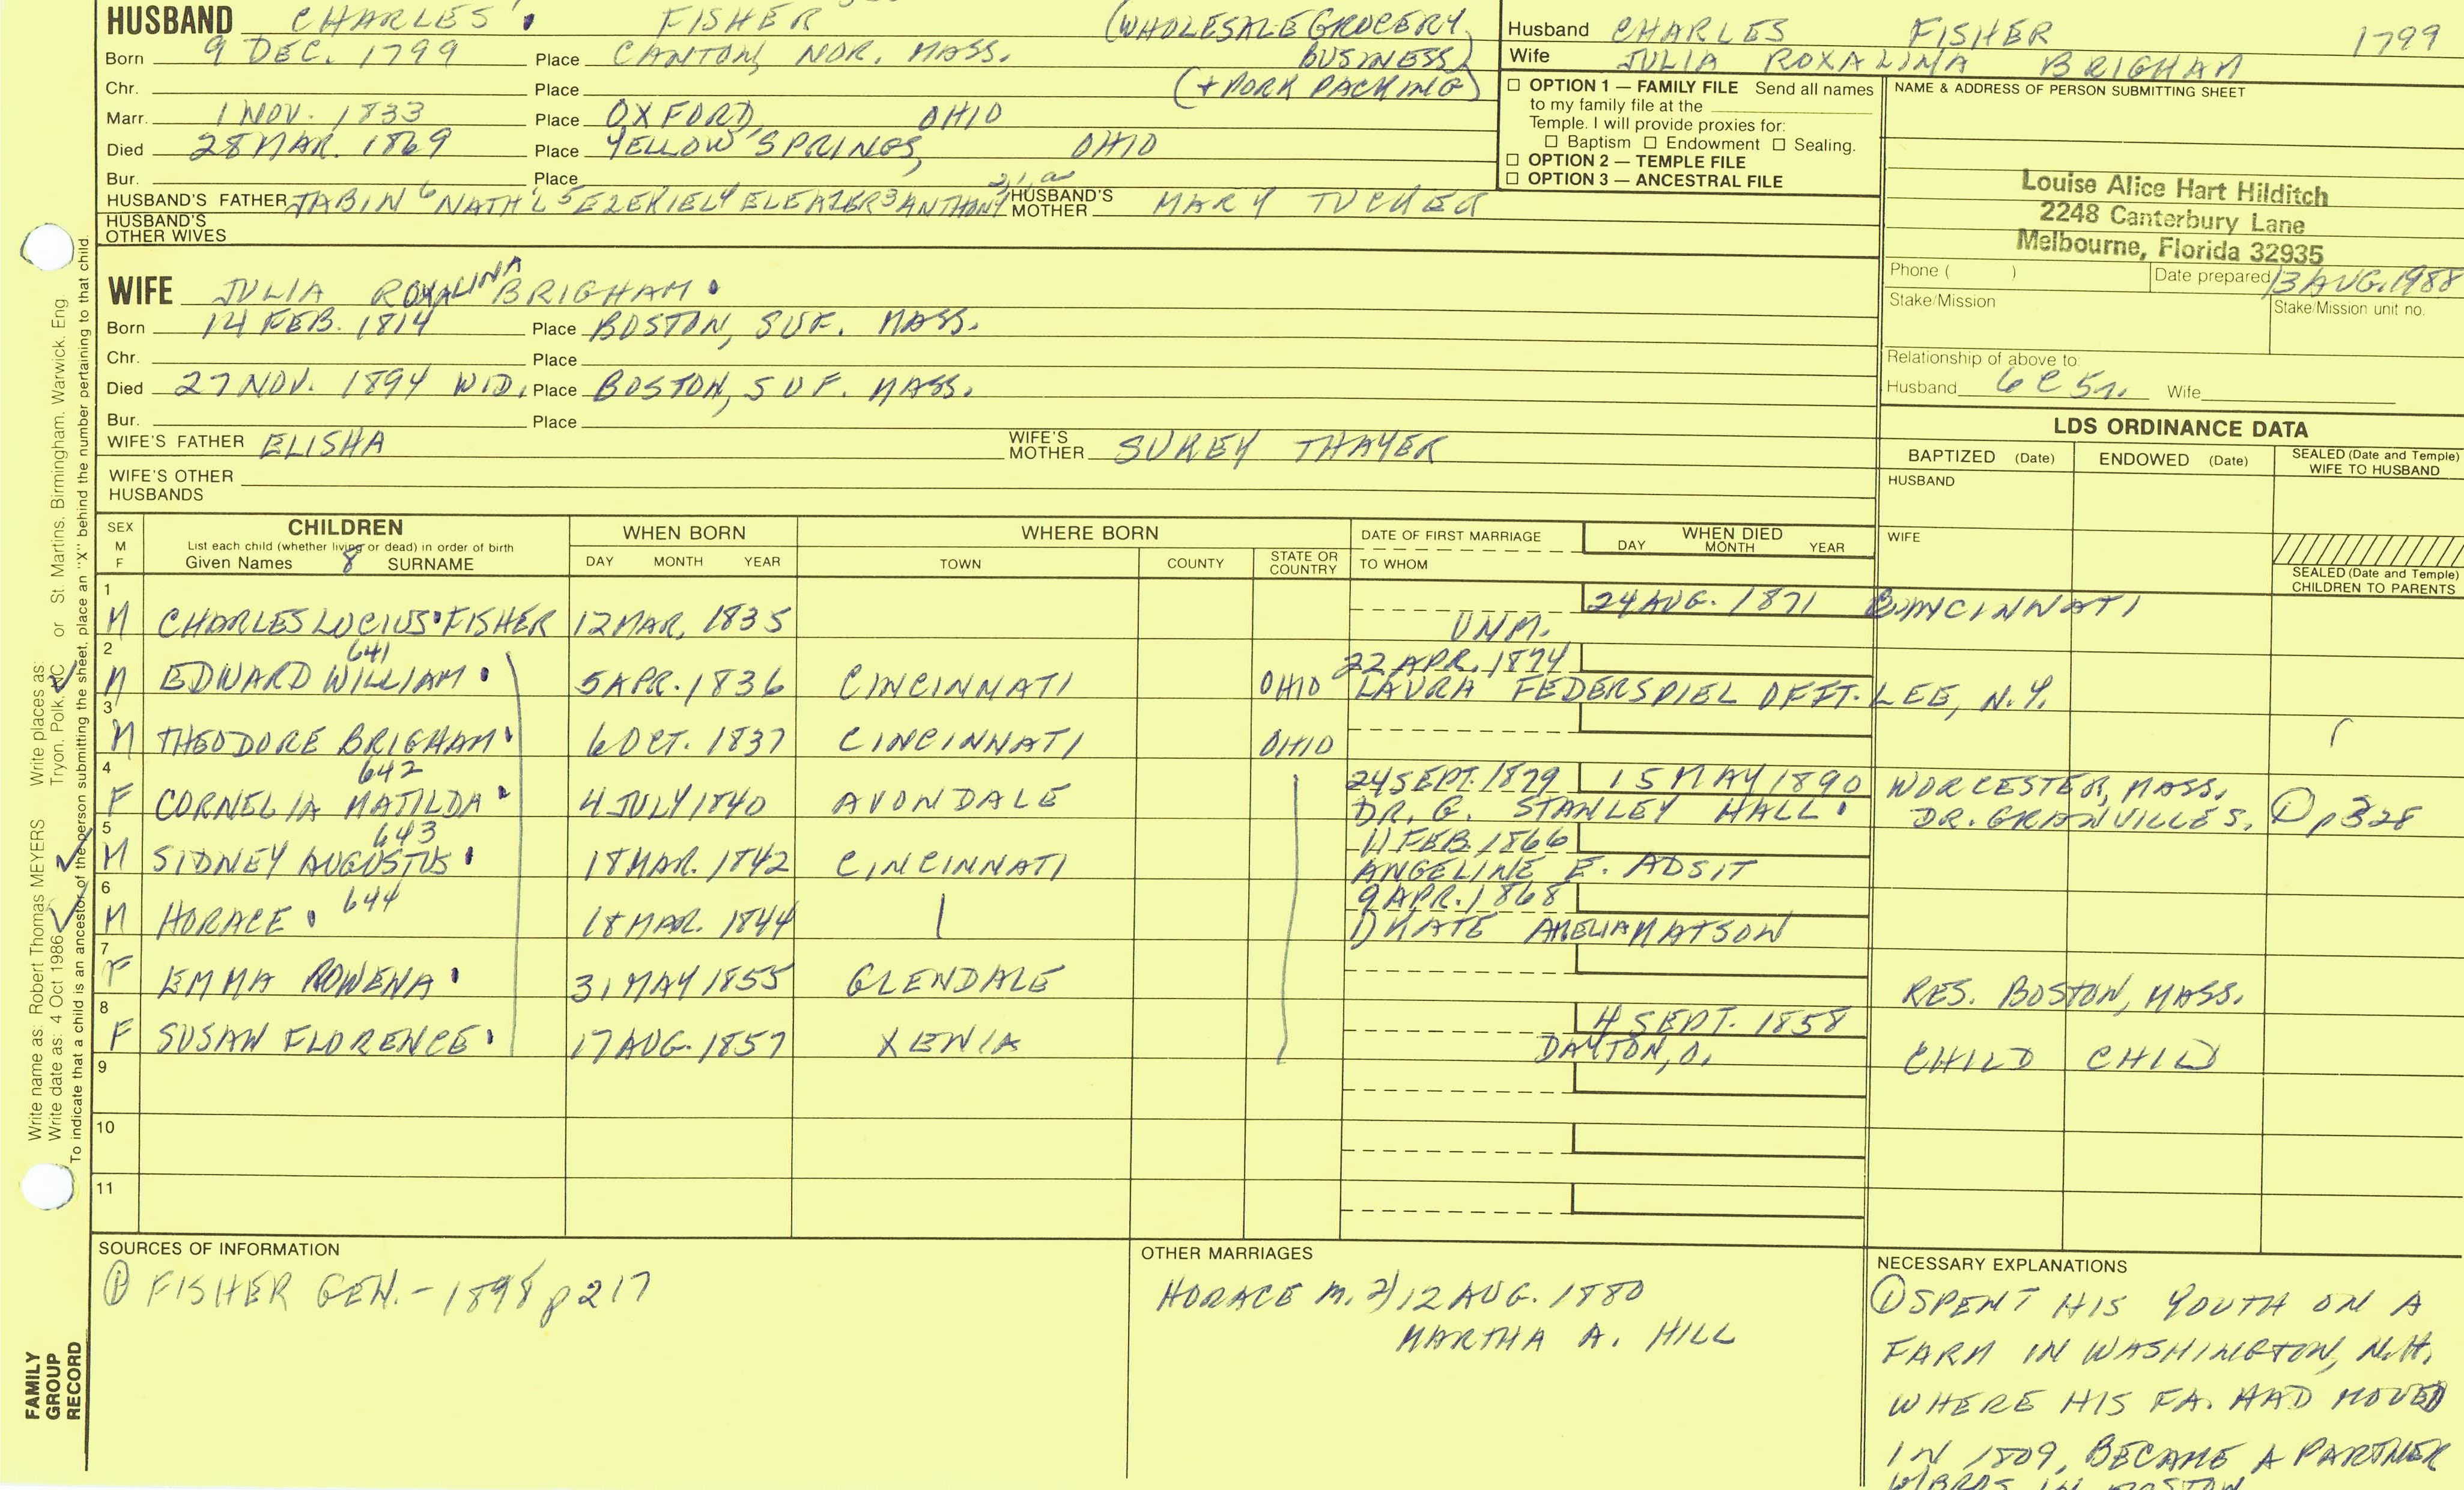 HUSBAND CHARLES FISHER (WHOLESALE GROCERY
Born 9 DEC. 1799 Place CANTON, NOR. MASS. BUSINESS)
Chr. Place (+ PORK PACKING)
Marr. 1 NOV. 1833 Place OXFORD, OHIO
Died 28 MAR. 1869 Place YELLOW SPRINGS, OHIO
Bur. Place
HUSBAND'S FATHER JABIN 6 NATH'L 5 EZEKIEL 4 ELEAZER 3 ANTHONY 2,1,a HUSBAND'S MOTHER MARY TUCKER
HUSBAND'S OTHER WIVES
Husband CHARLES FISHER 1799
Wife JULIA ROXALINA BRIGHAM
☐ OPTION 1 — FAMILY FILE Send all names
to my family file at the
Temple. I will provide proxies for:
☐ Baptism ☐ Endowment ☐ Sealing.
☐ OPTION 2 — TEMPLE FILE
☐ OPTION 3 — ANCESTRAL FILE
NAME & ADDRESS OF PERSON SUBMITTING SHEET
Louise Alice Hart Hilditch
2248 Canterbury Lane
Melbourne, Florida 32935
Phone ( ) Date prepared 13 AUG. 1988
Stake/Mission Stake/Mission unit no.
Relationship of above to:
Husband 6C5r. Wife
WIFE JULIA ROXALINA BRIGHAM
Born 14 FEB. 1814 Place BOSTON, SUF. MASS.
Chr. Place
Died 27 NOV. 1894 WID. Place BOSTON, SUF. MASS.
Bur. Place
WIFE'S FATHER ELISHA WIFE'S MOTHER SUREY THAYER
WIFE'S OTHER HUSBANDS
LDS ORDINANCE DATA
BAPTIZED (Date) ENDOWED (Date) SEALED (Date and Temple) WIFE TO HUSBAND
HUSBAND
WIFE
SEALED (Date and Temple) CHILDREN TO PARENTS
SEX M F
CHILDREN
List each child (whether living or dead) in order of birth
Given Names 8 SURNAME
WHEN BORN
DAY MONTH YEAR
WHERE BORN
TOWN COUNTY STATE OR COUNTRY
DATE OF FIRST MARRIAGE
TO WHOM
WHEN DIED
DAY MONTH YEAR
1 24 AUG. 1871 CINCINNATI
M CHARLES LUCIUS FISHER 12 MAR. 1835 UNM.
2 641 22 APR. 1874
M EDWARD WILLIAM 5 APR. 1836 CINCINNATI OHIO LAURA FEDERSPIEL OFFT. LEE, N.Y.
3
M THEODORE BRIGHAM 6 OCT. 1837 CINCINNATI OHIO
4 642 24 SEPT. 1879 15 MAY 1890 WORCESTER, MASS.
F CORNELIA MATILDA 4 JULY 1840 AVONDALE DR. G. STANLEY HALL DR. GRANVILLE S. ① p328
5 643 11 FEB. 1866
M SIDNEY AUGUSTUS 18 MAR. 1842 CINCINNATI ANGELINE E. ADSIT
6 644 9 APR. 1868
M HORACE 18 MAR. 1844 1) KATE AMELIA MATSON
7
F EMMA ROWENA 31 MAY 1855 GLENDALE RES. BOSTON, MASS.
8 4 SEPT. 1858
F SUSAN FLORENCE 17 AUG. 1857 XENIA DAYTON, O. CHILD CHILD
9
10
11
SOURCES OF INFORMATION
① FISHER GEN. - 1898 p217
OTHER MARRIAGES
HORACE m. 2) 12 AUG. 1880
MARTHA A. HILL
NECESSARY EXPLANATIONS
① SPENT HIS YOUTH ON A
FARM IN WASHINGTON, N.H.
WHERE HIS FA. HAD MOVED
IN 1809, BECAME A PARTNER
W/BROS. IN BOSTON
Write name as: Robert Thomas MEYERS Write places as: Tryon, Polk, NC or St. Martins, Birmingham, Warwick, Eng
Write date as: 4 Oct 1986
To indicate that a child is an ancestor of the person submitting the sheet, place an "X" behind the number pertaining to that child.
FAMILY
GROUP
RECORD